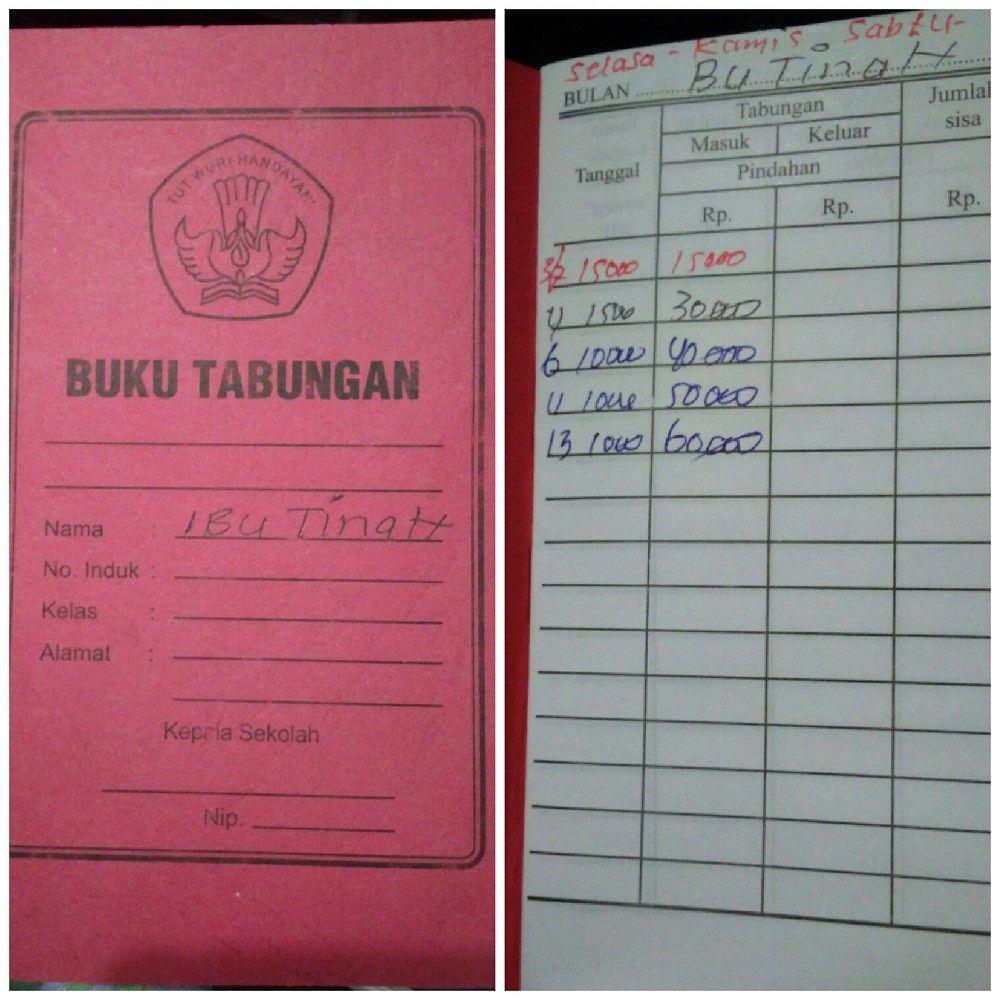 TUT WURI HANDAYANI
BUKU TABUNGAN
Nama : IBU TinaH
No. Induk :
Kelas :
Alamat :
Kepala Sekolah
Nip.
Selasa - Kamis Sabtu-
BULAN Bu TinaH
Tanggal Tabungan Jumlah sisa
Masuk Keluar
Pindahan
Rp. Rp. Rp.
15000 15000
1500 30,000
6 10000 40000
50000
13 1000 60,000